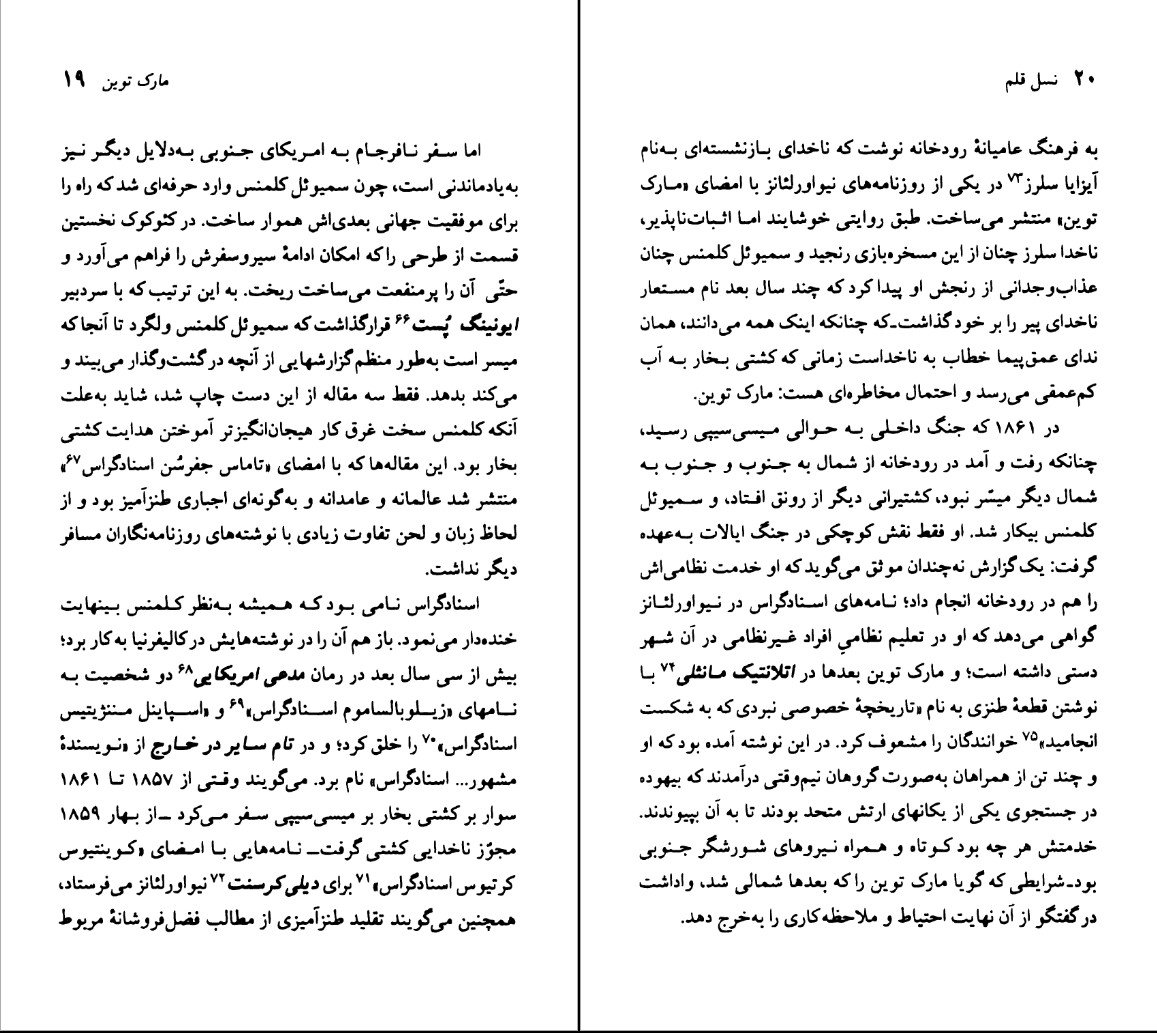 مارک توین ۱۹
اما سفر نافرجام به امریکای جنوبی به‌دلایل دیگر نیز
به‌یادماندنی است، چون سمیوئل کلمنس وارد حرفه‌ای شد که راه را
برای موفقیت جهانی بعدی‌اش هموار ساخت. در کئوکوک نخستین
قسمت از طرحی را که امکان ادامهٔ سیروسفرش را فراهم می‌آورد و
حتّی آن را پرمنفعت می‌ساخت ریخت. به این ترتیب که با سردبیر
ایونینگ پُست۶۶ قرارگذاشت که سمیوئل کلمنس ولگرد تا آنجا که
میسر است به‌طور منظم گزارشهایی از آنچه در گشت‌وگذار می‌بیند و
می‌کند بدهد. فقط سه مقاله از این دست چاپ شد، شاید به‌علت
آنکه کلمنس سخت غرق کار هیجان‌انگیزتر آموختن هدایت کشتی
بخار بود. این مقاله‌ها که با امضای «تاماس جفرسُن اسنادگراس۶۷»
منتشر شد عالمانه و عامدانه و به‌گونه‌ای اجباری طنزآمیز بود و از
لحاظ زبان و لحن تفاوت زیادی با نوشته‌های روزنامه‌نگاران مسافر
دیگر نداشت.
اسنادگراس نامی بود که همیشه به‌نظر کلمنس بینهایت
خنده‌دار می‌نمود. باز هم آن را در نوشته‌هایش در کالیفرنیا به کار برد؛
بیش از سی سال بعد در رمان مدعی امریکایی۶۸ دو شخصیت به
نامهای «زیلوبالساموم اسنادگراس»۶۹ و «اسپاینل مننژیتیس
اسنادگراس»۷۰ را خلق کرد؛ و در تام سایر در خارج از «نویسندهٔ
مشهور... اسنادگراس» نام برد. می‌گویند وقتی از ۱۸۵۷ تا ۱۸۶۱
سوار بر کشتی بخار بر میسی‌سیپی سفر می‌کرد ــ از بهار ۱۸۵۹
مجوّز ناخدایی کشتی گرفت ــ نامه‌هایی با امضای «کوینتیوس
کرتیوس اسنادگراس»۷۱ برای دیلی‌کرسنت۷۲ نیواورلئانز می‌فرستاد،
همچنین می‌گویند تقلید طنزآمیزی از مطالب فضل‌فروشانهٔ مربوط
۲۰ نسل قلم
به فرهنگ عامیانهٔ رودخانه نوشت که ناخدای بازنشسته‌ای به‌نام
آیزایا سلرز۷۳ در یکی از روزنامه‌های نیواورلئانز با امضای «مارک
توین» منتشر می‌ساخت. طبق روایتی خوشایند اما اثبات‌ناپذیر،
ناخدا سلرز چنان از این مسخره‌بازی رنجید و سمیوئل کلمنس چنان
عذاب‌وجدانی از رنجش او پیدا کرد که چند سال بعد نام مستعار
ناخدای پیر را بر خود گذاشت ـ که چنانکه اینک همه می‌دانند، همان
ندای عمق‌پیما خطاب به ناخداست زمانی که کشتی بخار به آب
کم‌عمقی می‌رسد و احتمال مخاطره‌ای هست: مارک توین.
در ۱۸۶۱ که جنگ داخلی به حوالی میسی‌سیپی رسید،
چنانکه رفت و آمد در رودخانه از شمال به جنوب و جنوب به
شمال دیگر میسّر نبود، کشتیرانی دیگر از رونق افتاد، و سمیوئل
کلمنس بیکار شد. او فقط نقش کوچکی در جنگ ایالات به‌عهده
گرفت: یک گزارش نه‌چندان موثق می‌گوید که او خدمت نظامی‌اش
را هم در رودخانه انجام داد؛ نامه‌های اسنادگراس در نیواورلئانز
گواهی می‌دهد که او در تعلیم نظامیِ افراد غیرنظامی در آن شهر
دستی داشته است؛ و مارک توین بعدها در اتلانتیک مانثلی۷۴ با
نوشتن قطعهٔ طنزی به نام «تاریخچهٔ خصوصی نبردی که به شکست
انجامید»۷۵ خوانندگان را مشعوف کرد. در این نوشته آمده بود که او
و چند تن از همراهان به‌صورت گروهان نیم‌وقتی درآمدند که بیهوده
در جستجوی یکی از یکانهای ارتش متحد بودند تا به آن بپیوندند.
خدمتش هر چه بود کوتاه و همراه نیروهای شورشگر جنوبی
بود ـ شرایطی که گویا مارک توین را که بعدها شمالی شد، واداشت
در گفتگو از آن نهایت احتیاط و ملاحظه‌کاری را به‌خرج دهد.